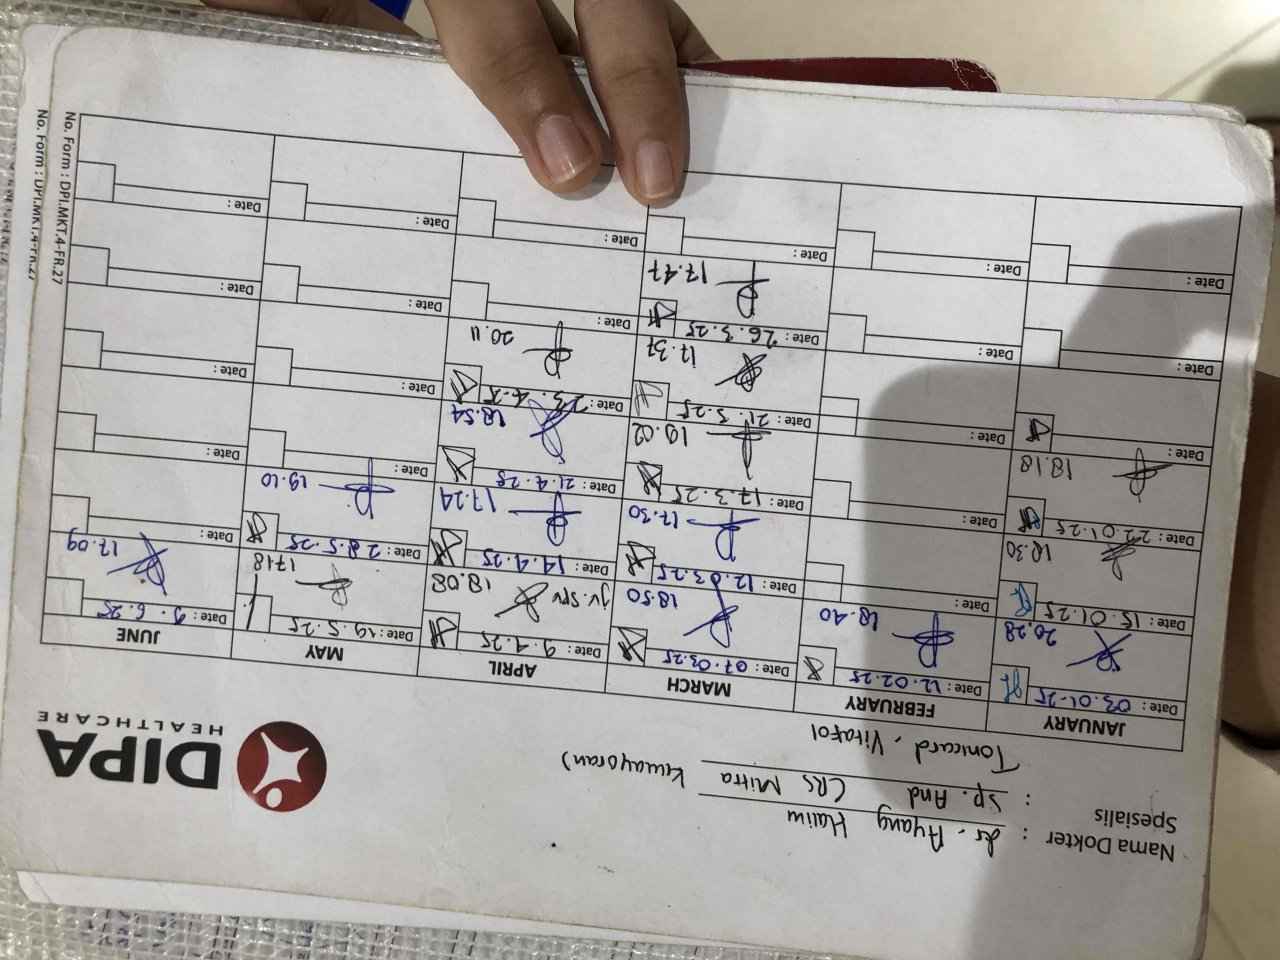 Nama Dokter : dr. Ayang Halim
Spesialis : Sp. And (RS Mitra Kemayoran)
Tonicard, Vitafol
DIPA
HEALTHCARE
JANUARY
Date : 03.01.25
20.28
Date : 15.01.25
18.30
Date : 22.01.25
18.18
Date :
Date :
Date :
FEBRUARY
Date : 12.02.25
18.40
Date :
Date :
Date :
Date :
Date :
MARCH
Date : 07.03.25
18.50
Date : 12.03.25
17.30
Date : 17.3.25
19.02
Date : 21.3.25
17.37
Date : 26.3.25
17.47
Date :
APRIL
Date : 9.4.25
jv. spv 18.08
Date : 14.4.25
17.24
Date : 21.4.25
18.54
Date : 23.4.25
20.11
Date :
Date :
MAY
Date : 19.5.25
17.18
Date : 28.5.25
19.10
Date :
Date :
Date :
Date :
JUNE
Date : 9.6.25
17.09
Date :
Date :
Date :
Date :
Date :
No. Form : DPI.MKT.4-FR.27
No. Form : DPI.MKT.4-FR.27